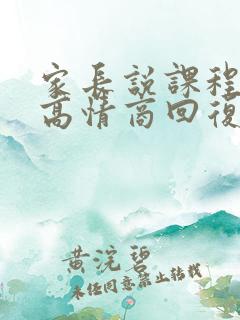 家长說課程
高情商回復
黄浣碧
未经同意禁止转载